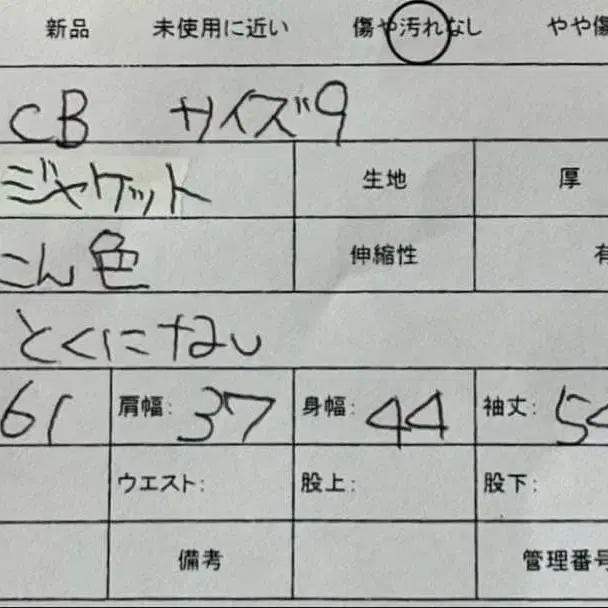 新品 未使用に近い 傷や汚れなし やや傷
CB サイズ9
ジャケット 生地 厚
こん色 伸縮性 有
とくになし
61 肩幅: 37 身幅: 44 袖丈: 54
ウエスト: 股上: 股下:
備考 管理番号